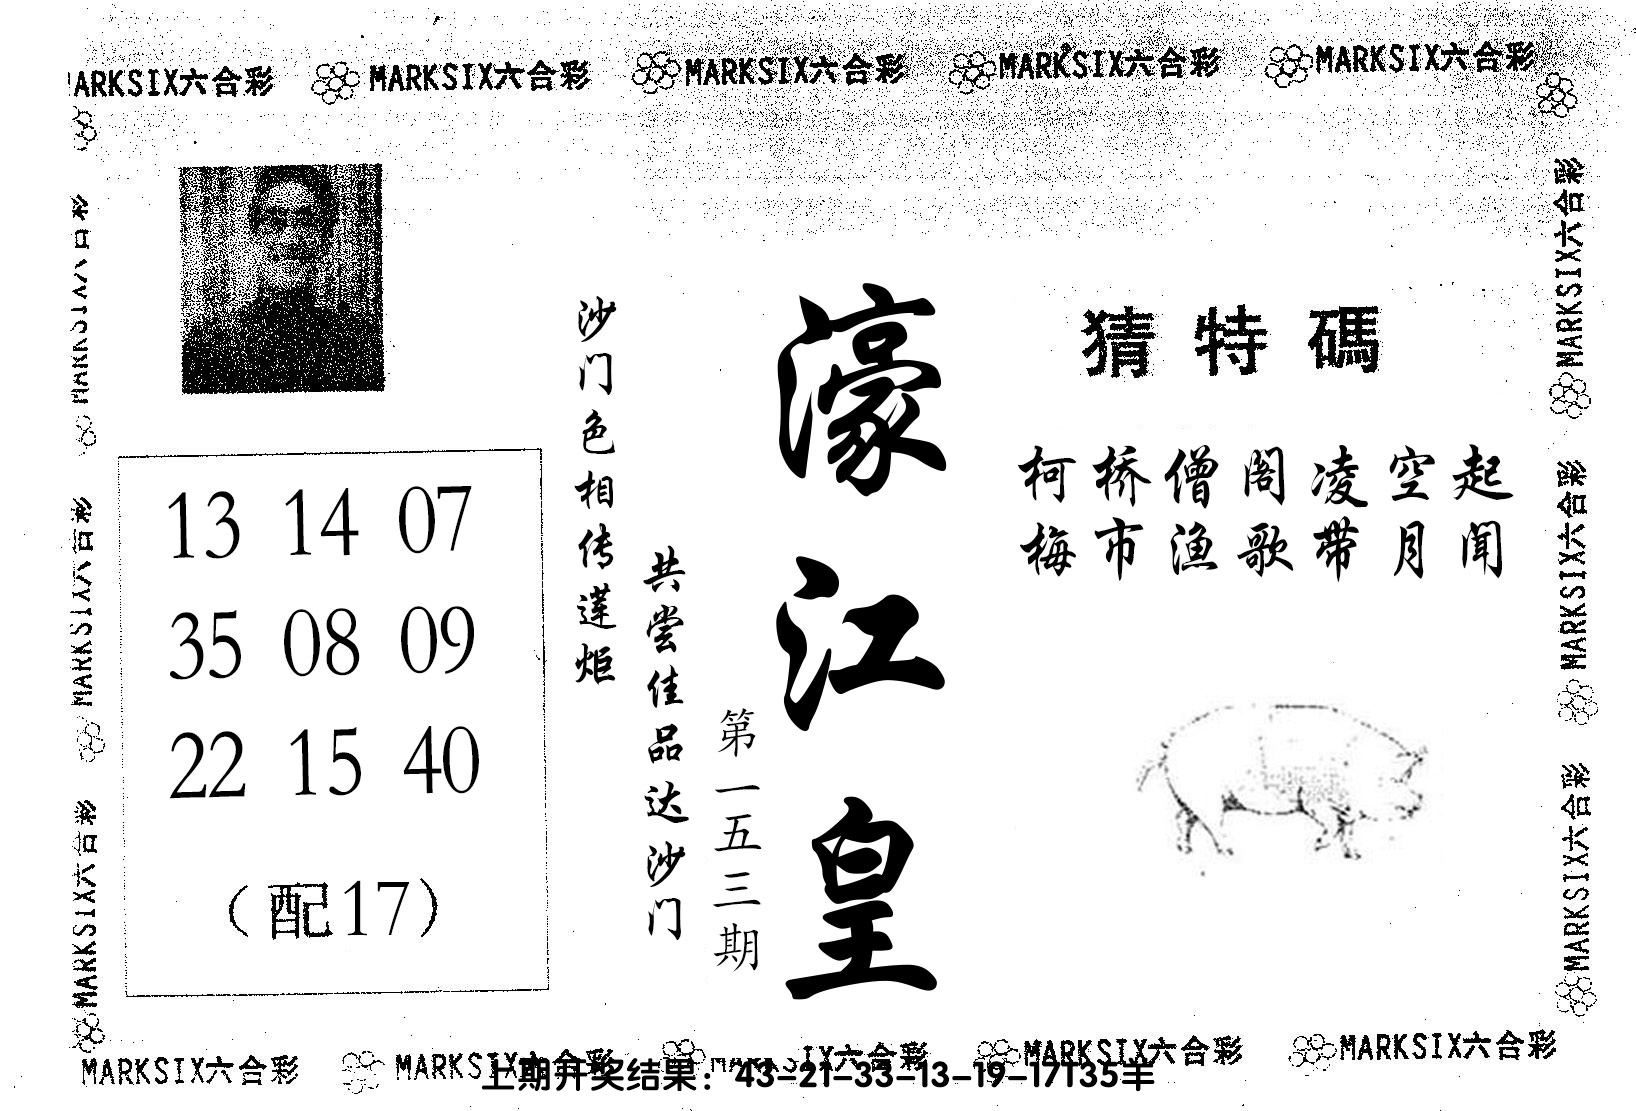 MARKSIX六合彩 MARKSIX六合彩 MARKSIX六合彩 MARKSIX六合彩 MARKSIX六合彩
猜特碼
柯桥僧阁凌空起
梅市渔歌带月闻
濠江皇
第一五三期
沙门色相传莲炬
共尝佳品达沙门
13 14 07
35 08 09
22 15 40
（配17）
MARKSIX六合彩
MARKSIX六合彩
MARKSIX六合彩
MARKSIX六合彩
MARKSIX六合彩
MARKSIX六合彩
MARKSIX六合彩 MARKSIX六合彩 MARKSIX六合彩 MARKSIX六合彩 MARKSIX六合彩
上期开奖结果：43-21-33-13-19-17T35羊